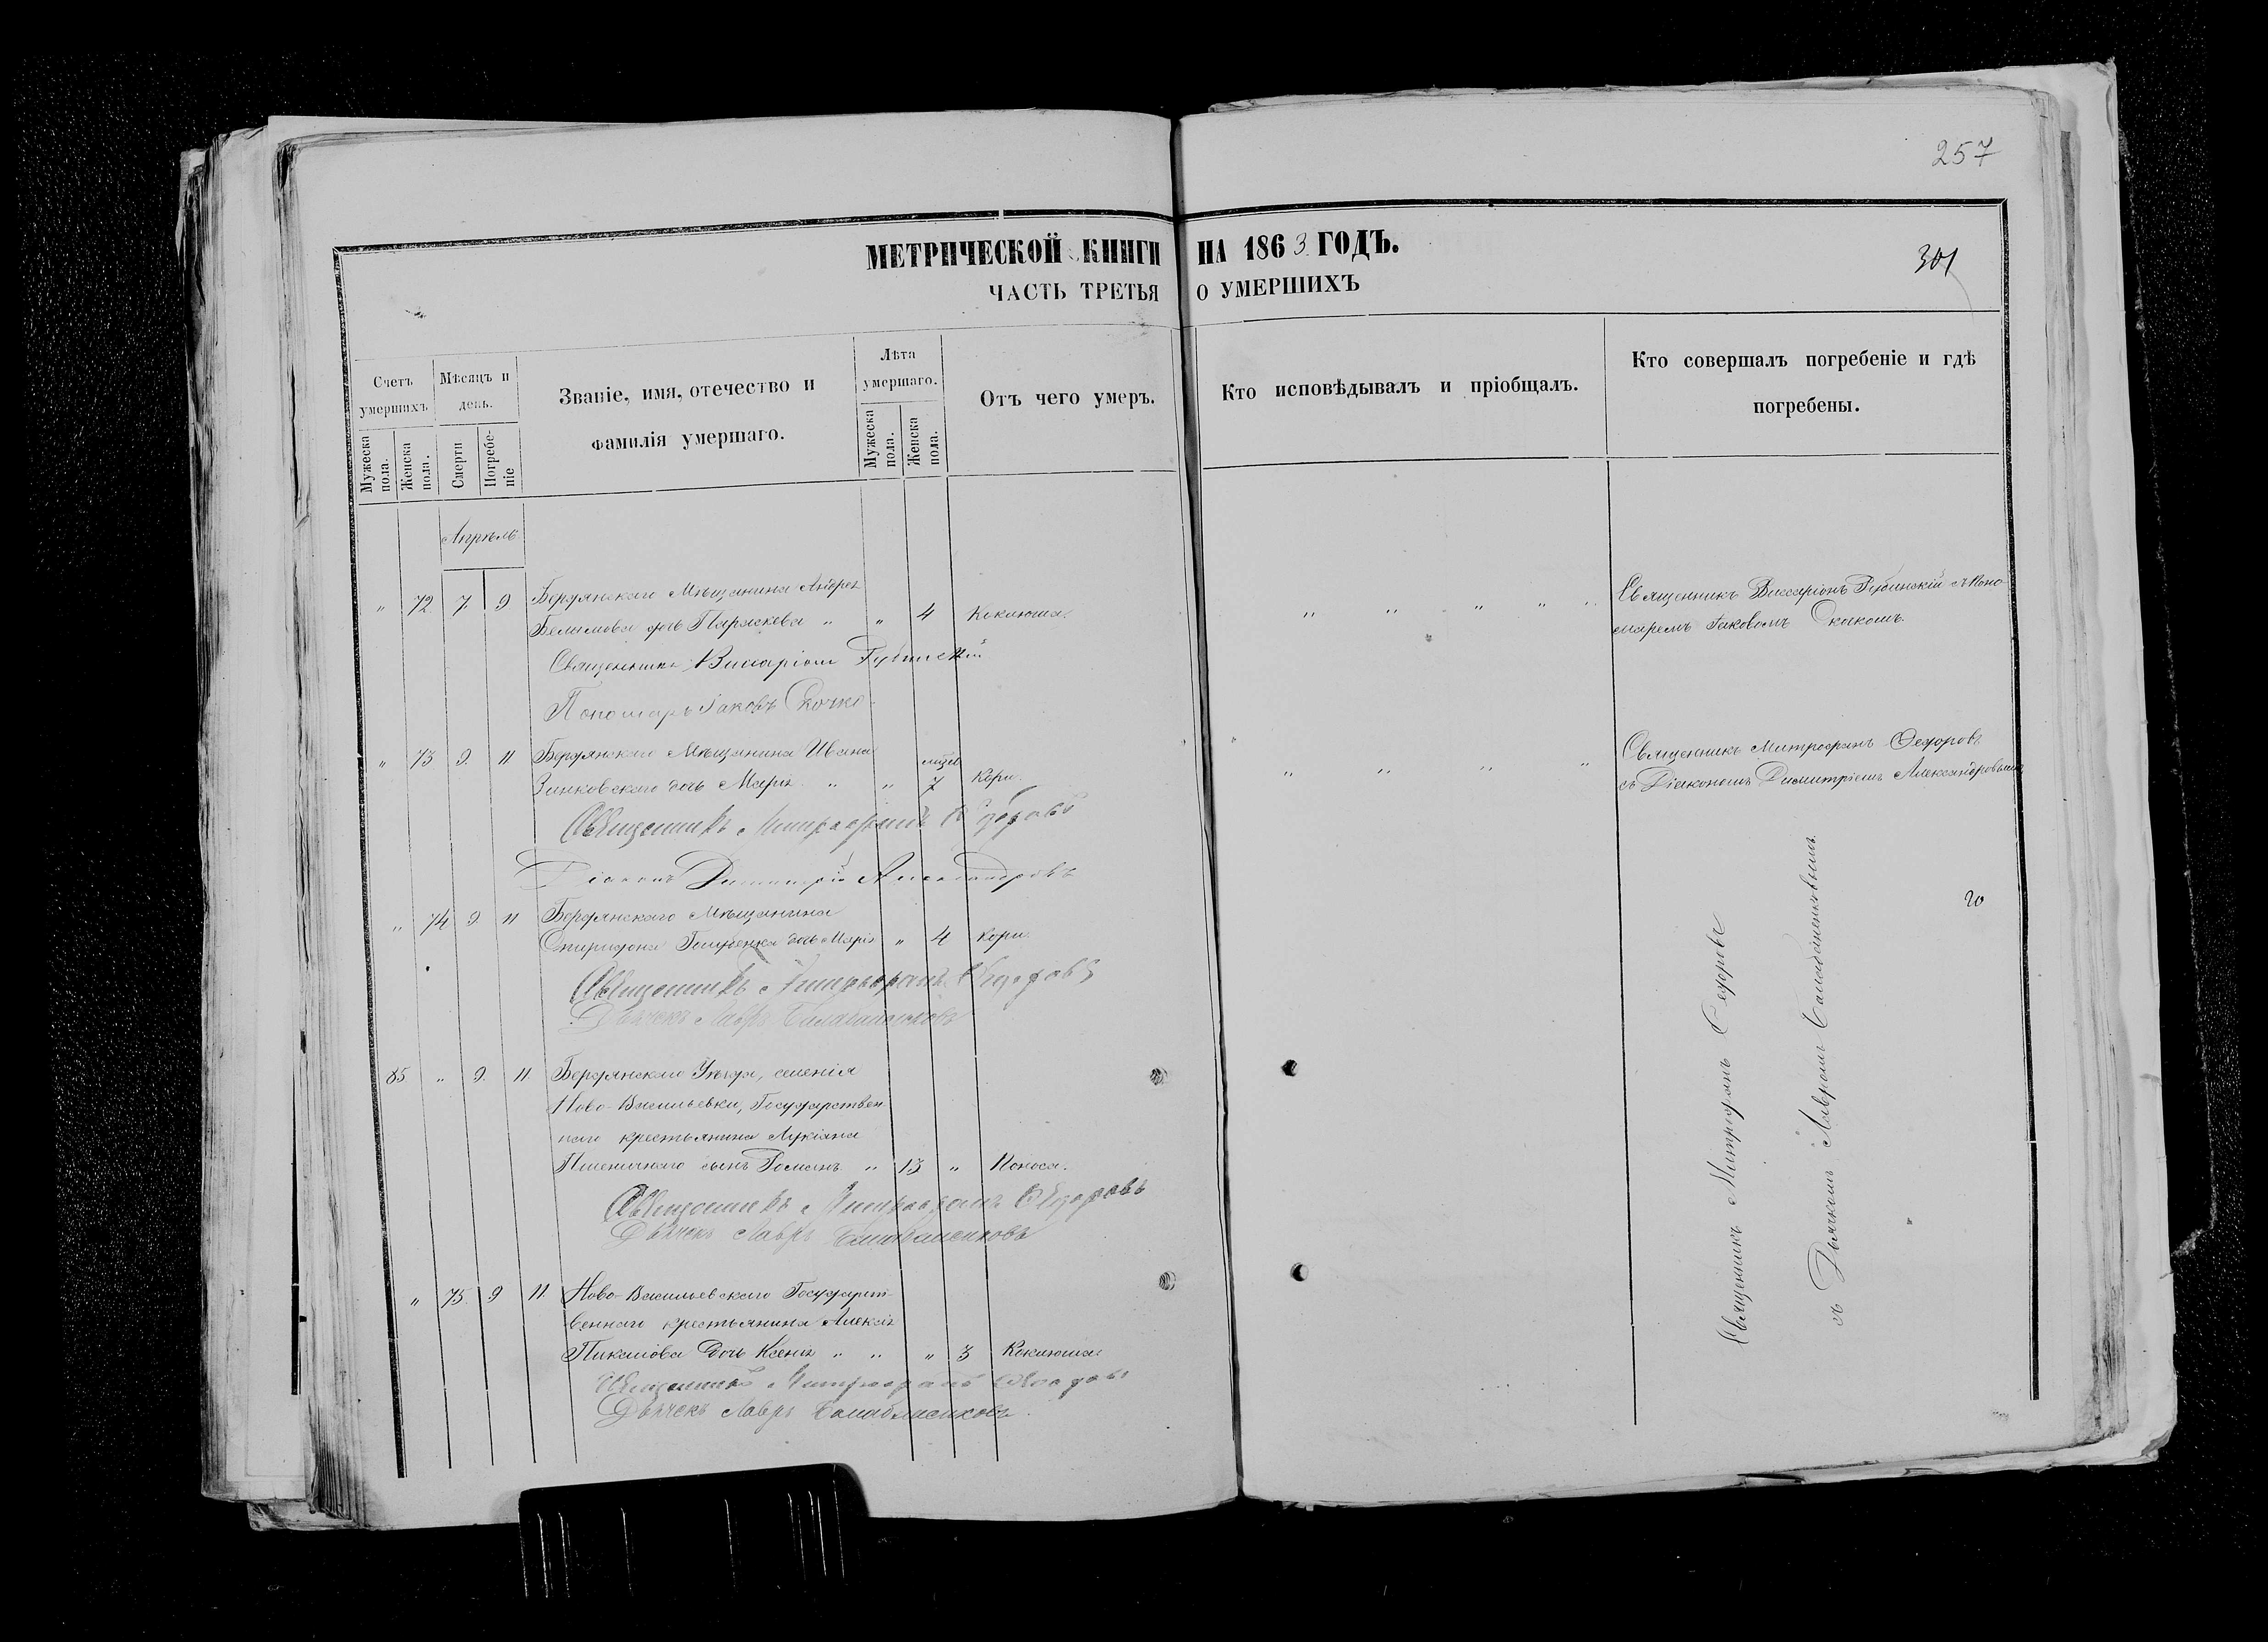 257
МЕТРИЧЕСКОЙ КНИГИ НА 1863 ГОДЪ.
301
ЧАСТЬ ТРЕТЬЯ О УМЕРШИХЪ
Счетъ умершихъ
Мужеска пола.
Женска пола.
Мѣсяцъ и день.
Смерти
Погребеніе
Званіе, имя, отечество и
фамилія умершаго.
Лѣта умершаго.
Мужеска пола.
Женска пола.
Отъ чего умеръ.
Кто исповѣдывалъ и пріобщалъ.
Кто совершалъ погребеніе и гдѣ
погребены.
Апрѣль
" 72 7. 9 Бердянскаго Мѣщанина Андрея
дочь Параскева " " 4 Коклюша.
Священникъ Виссаріонъ Губинскій съ Поно-
маремъ Іаковомъ
Священникъ Виссаріонъ Губинскій
Пономарь Іаковъ
" 73 9. 11 Бердянскаго Мѣщанина Ивана
Зинковскаго дочь Марія " " 7 Кори.
Священникъ Митрофанъ Ѳедоровъ
съ Діакономъ Димитріемъ Александровымъ
Священникъ Митрофанъ Ѳедоровъ
Діаконъ Димитрій Александровъ
" 74 9 11 Бердянскаго Мѣщанина
Спиридона дочь Марія " 4 Кори.
20
Священникъ Митрофанъ Ѳедоровъ
Дьячекъ Лавръ
85 " 9. 11. Бердянскаго Уѣзда, селенія
Ново-Васильевки, Государствен-
наго крестьянина Лукіана
Пшеничнаго сынъ Романъ " 13 " Поноса.
Священникъ Митрофанъ Ѳедоровъ
Дьячекъ Лавръ
" 75. 9 11. Ново-Васильевскаго Государст-
веннаго крестьянина Алексія
дочь Ксенія " " " 3 Коклюша
Священникъ Митрофанъ Ѳедоровъ
Дьячекъ Лавръ
Священникъ Митрофанъ Ѳедоровъ
съ Дьячкомъ Лавромъ